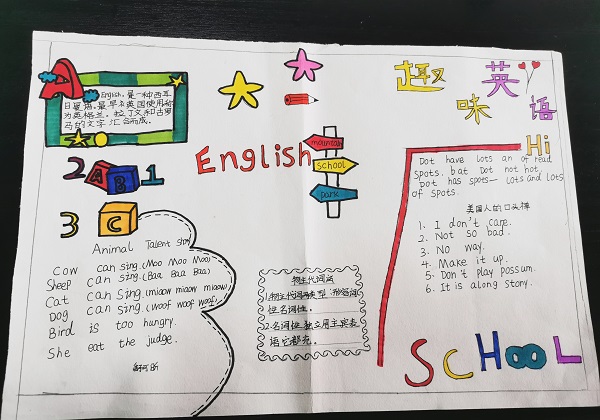 A
English, 是一种西耳
日曼语,最早为英国使用称
为英格兰。拉丁文和古罗
马的文字汇合而成。
2 A B 1
3 C
English
mountain
SCHOOL
park
趣味英语
Hi
Dot have lots an of read
spots. bat Dot not hot
pot has spots— lots and lots
of spots.
美国人的口头禅
1. I don't care.
2. Not so bad.
3. No way.
4. Make it up.
5. Don't play possum.
6. It is along story.
SCHOOL
Animal Talent Show
Cow can sing.(Moo Moo Moo)
Sheep can sing.(Baa Baa Baa)
Cat can sing.(miaow miaow miaow)
Dog can sing.(woof woof woof)
Bird is too hungry.
She eat the judge.
物主代词法
1.物主代词两类型:形容词
性名词性。
2.名词性独立用主宾表
语它都充。